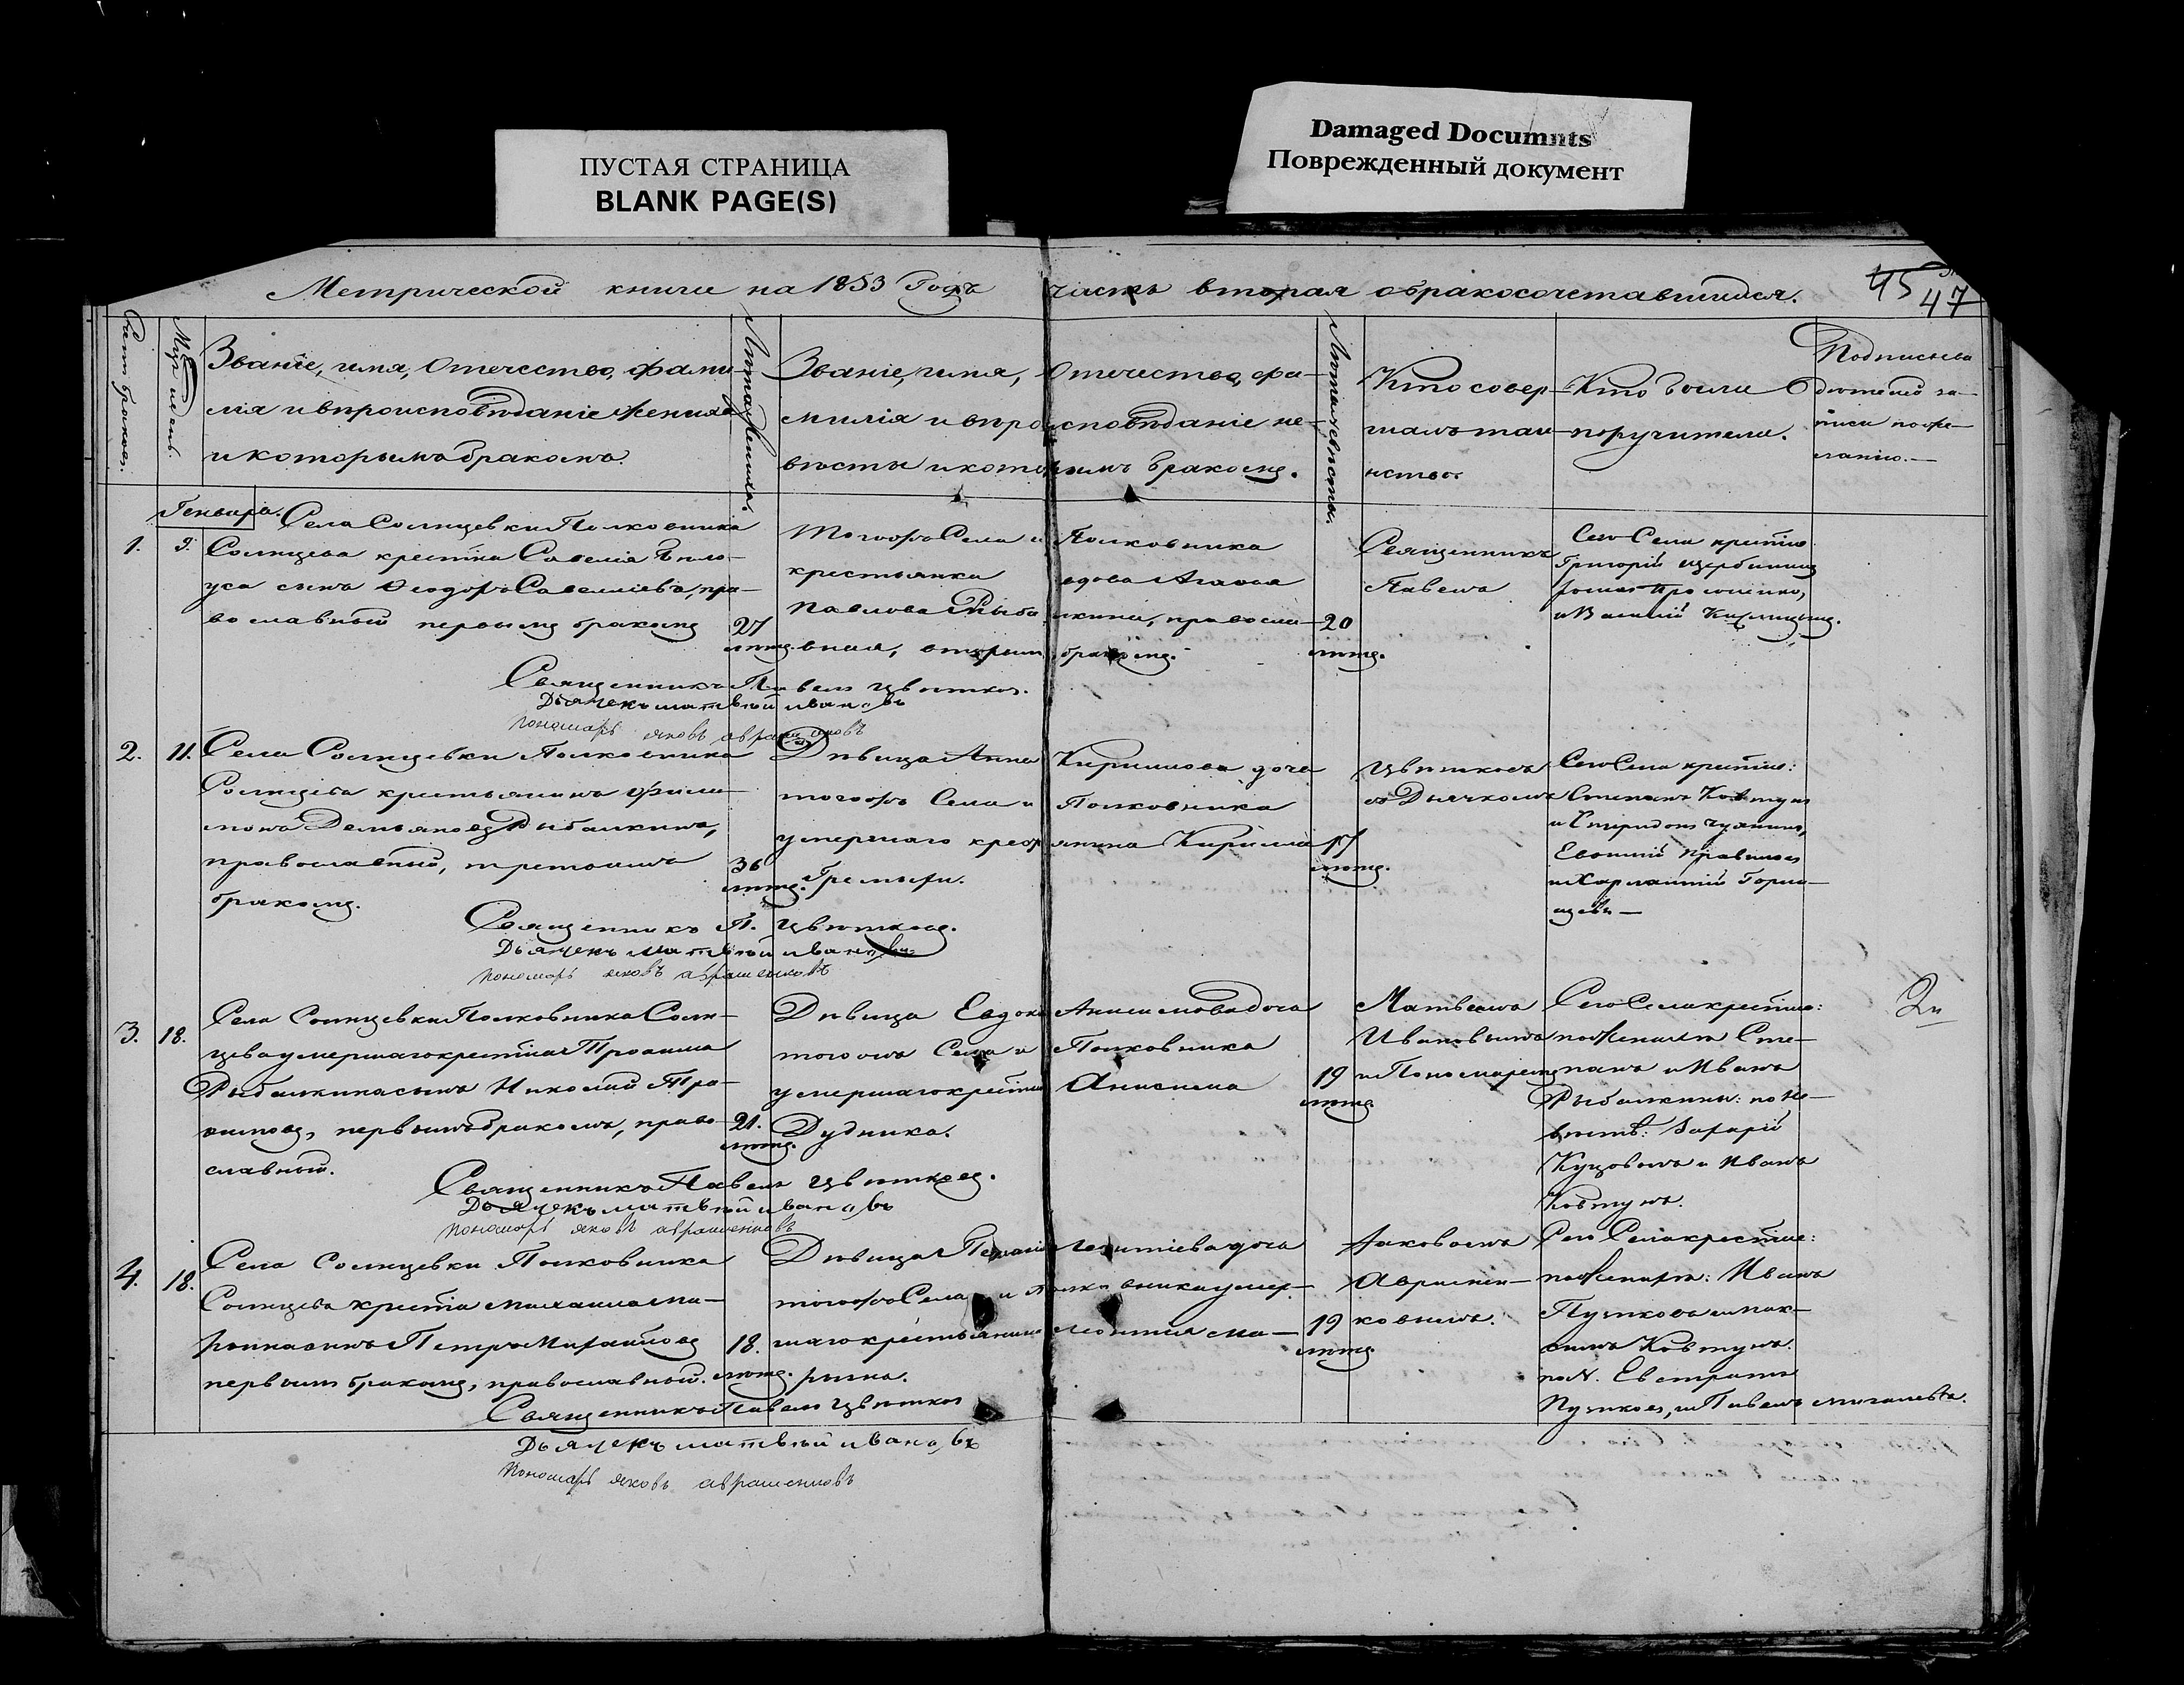 ПУСТАЯ СТРАНИЦА
BLANK PAGE(S)
Damaged Documnts
Поврежденный документ
Метрической книги на 1853 Годъ часть вторая о бракосочетавшихся.
45 47
Счетъ браковъ.
Мѣсяцъ и день.
Званіе, имя, Отечество, фами-
лія и вѣроисповѣданіе жениха
и которымъ бракомъ.
Лѣта жениха.
Званіе, имя, Отечество, фа-
милія и вѣроисповѣданіе не-
вѣсты и которымъ бракомъ.
Лѣта невѣсты.
Кто совер-
шалъ таи-
нство.
Кто были
поручители.
Подпись сви-
дѣтелей за-
писи по же-
ланію.
Генваря.
1.
Села Солнцевки Полковника
Солнцева крестна Савелія Бѣло-
уса сынъ Ѳеодоръ Савеліевъ, пра-
вославный первымъ бракомъ
27
лѣтъ.
Тогожъ Села и Полковника
крестьянка вдова Агафія
Павлова Рыбалкина, правосла-
вная, вторымъ бракомъ.
20
лѣтъ.
Священникъ
Павелъ
Сего Села крестіне
Григорій Щербининъ
и Василій
Священникъ Павелъ Цвѣтковъ.
Дьячекъ матвѣй ивановъ
пономарь яковъ авраменковъ
2.
11.
Села Солнцевки Полковника
Солнцева крестьянинъ Фили-
монъ Демьяновъ Рыбалкинъ,
православный, третьимъ
бракомъ.
36
лѣтъ.
Дѣвица Анна Кирилова дочь
тогожъ Села и Полковника
умершаго крестянина Кирилла
Гремыки.
17
лѣтъ.
Цвѣтковъ
съ Дьячкомъ
Сего Села крестіне:
Степанъ Ковтунъ
и Спиридонъ
Евфимій
и Харлампій Горни-
цевъ
Священникъ П. Цвѣтковъ.
Дьячекъ матвѣй ивановъ
пономарь яковъ авраменковъ
3.
18.
Села Солнцевки Полковника Солн-
цева умершаго крестіна Трофима
Рыбалкина сынъ Николай Тро-
фимовъ, первымъ бракомъ, право-
славный.
21.
лѣтъ.
Дѣвица Евдокія Анисимова дочь
тогожъ Села и Полковника
умершаго крестіна Анисима
Дудника.
19
лѣтъ.
Матвеемъ
Ивановымъ
и Пономаремъ
Сего Села крестіне:
по женихѣ Сте-
панъ и Иванъ
Рыбалкины: по не-
вѣстѣ: Захарій
Куцовъ и Иванъ
Ковтунъ.
Священникъ Павелъ Цвѣтковъ.
Дьячекъ матвѣй ивановъ
пономарь яковъ авраменковъ
4.
18.
Села Солнцевки Полковника
Солнцева крестіа Михаила Ма-
рынка сынъ Петръ Михайловъ
первымъ бракомъ, православный.
18.
лѣтъ.
Дѣвица Пелагія Леонтіева дочь
тогожъ Села и Полковника умер-
шаго крестьянина Леонтія Ма-
рына.
19
лѣтъ.
Яковомъ
Аврамен-
ковымъ.
Сего Села крестіне:
по женихѣ: Иванъ
Путковъ и Мак-
симъ Ковтунъ.
по Н. Евстратъ
Путковъ, и Павелъ
Священникъ Павелъ Цвѣтков
Дьячекъ матвѣй ивановъ
пономарь яковъ авраменковъ